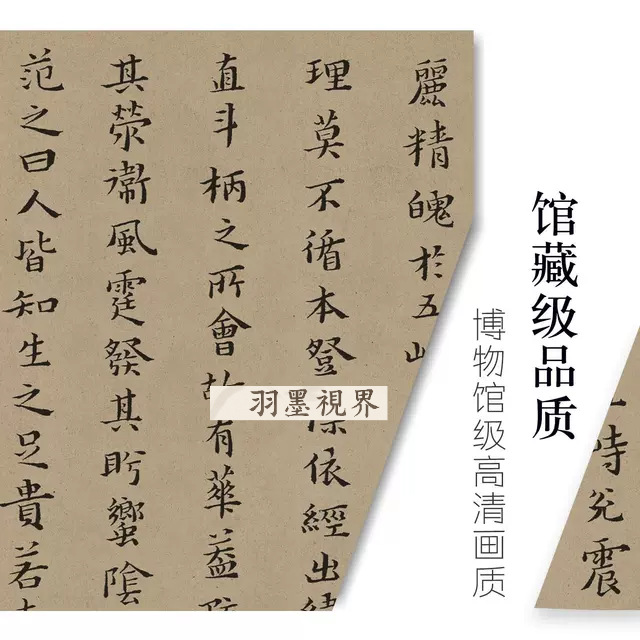 麗精魄於五
理莫不循本登依經出
直斗柄之所會故有華蓋
其滎衞風霆發其肸蠁陰
范之曰人皆知生之足貴若
羽墨視界
馆藏级品质
博物馆级高清画质
時兌震